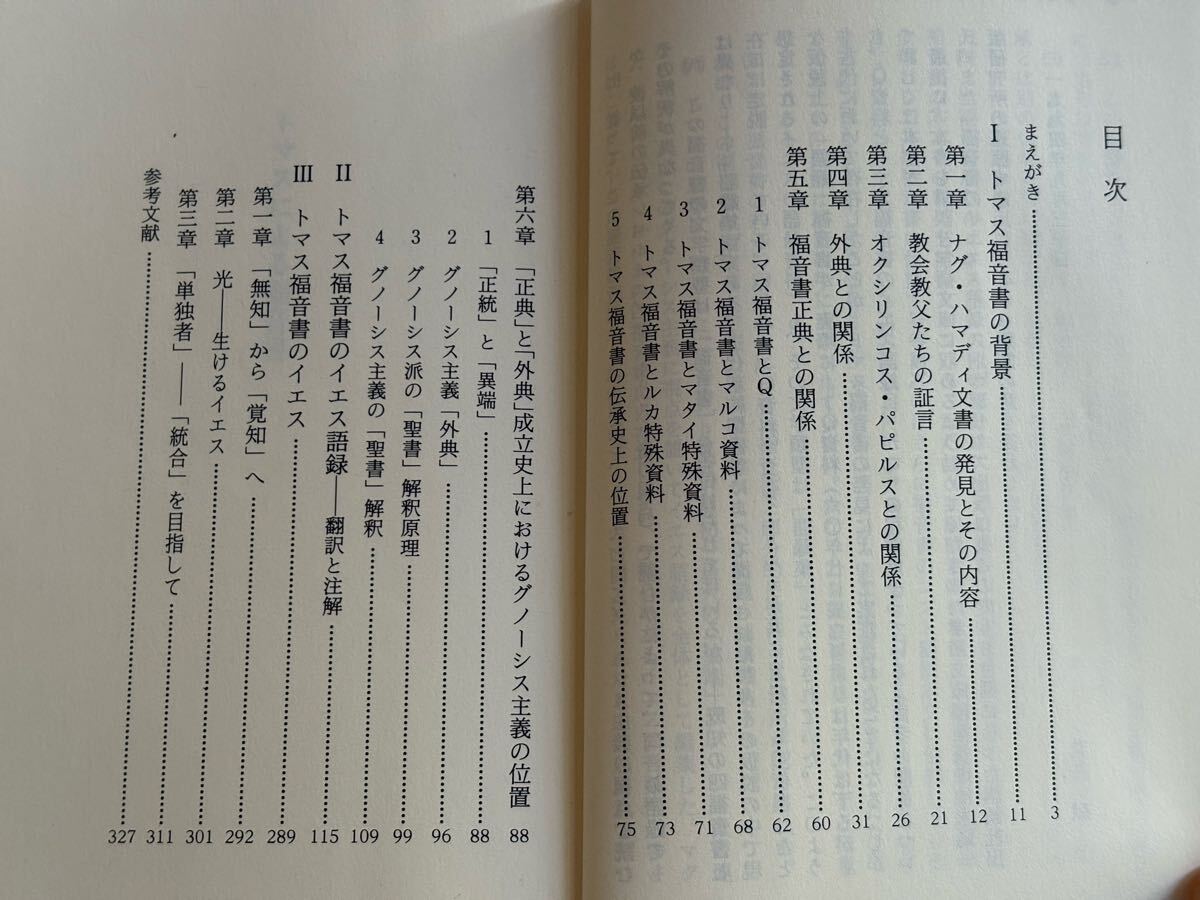 目次
まえがき……………3
Ⅰ トマス福音書の背景……………11
第一章 ナグ・ハマディ文書の発見とその内容……………12
第二章 教会教父たちの証言……………21
第三章 オクシリンコス・パピルスとの関係……………26
第四章 外典との関係……………31
第五章 福音書正典との関係……………60
1 トマス福音書とQ……………62
2 トマス福音書とマルコ資料……………68
3 トマス福音書とマタイ特殊資料……………71
4 トマス福音書とルカ特殊資料……………73
5 トマス福音書の伝承史上の位置……………75
第六章 「正典」と「外典」成立史上におけるグノーシス主義の位置……………88
1 「正統」と「異端」……………88
2 グノーシス主義「外典」……………96
3 グノーシス派の「聖書」解釈原理……………99
4 グノーシス主義の「聖書」解釈……………109
Ⅱ トマス福音書のイエス語録——翻訳と注解……………115
Ⅲ トマス福音書のイエス……………289
第一章 「無知」から「覚知」へ……………292
第二章 光——生けるイエス……………301
第三章 「単独者」——「統合」を目指して……………311
参考文献……………327